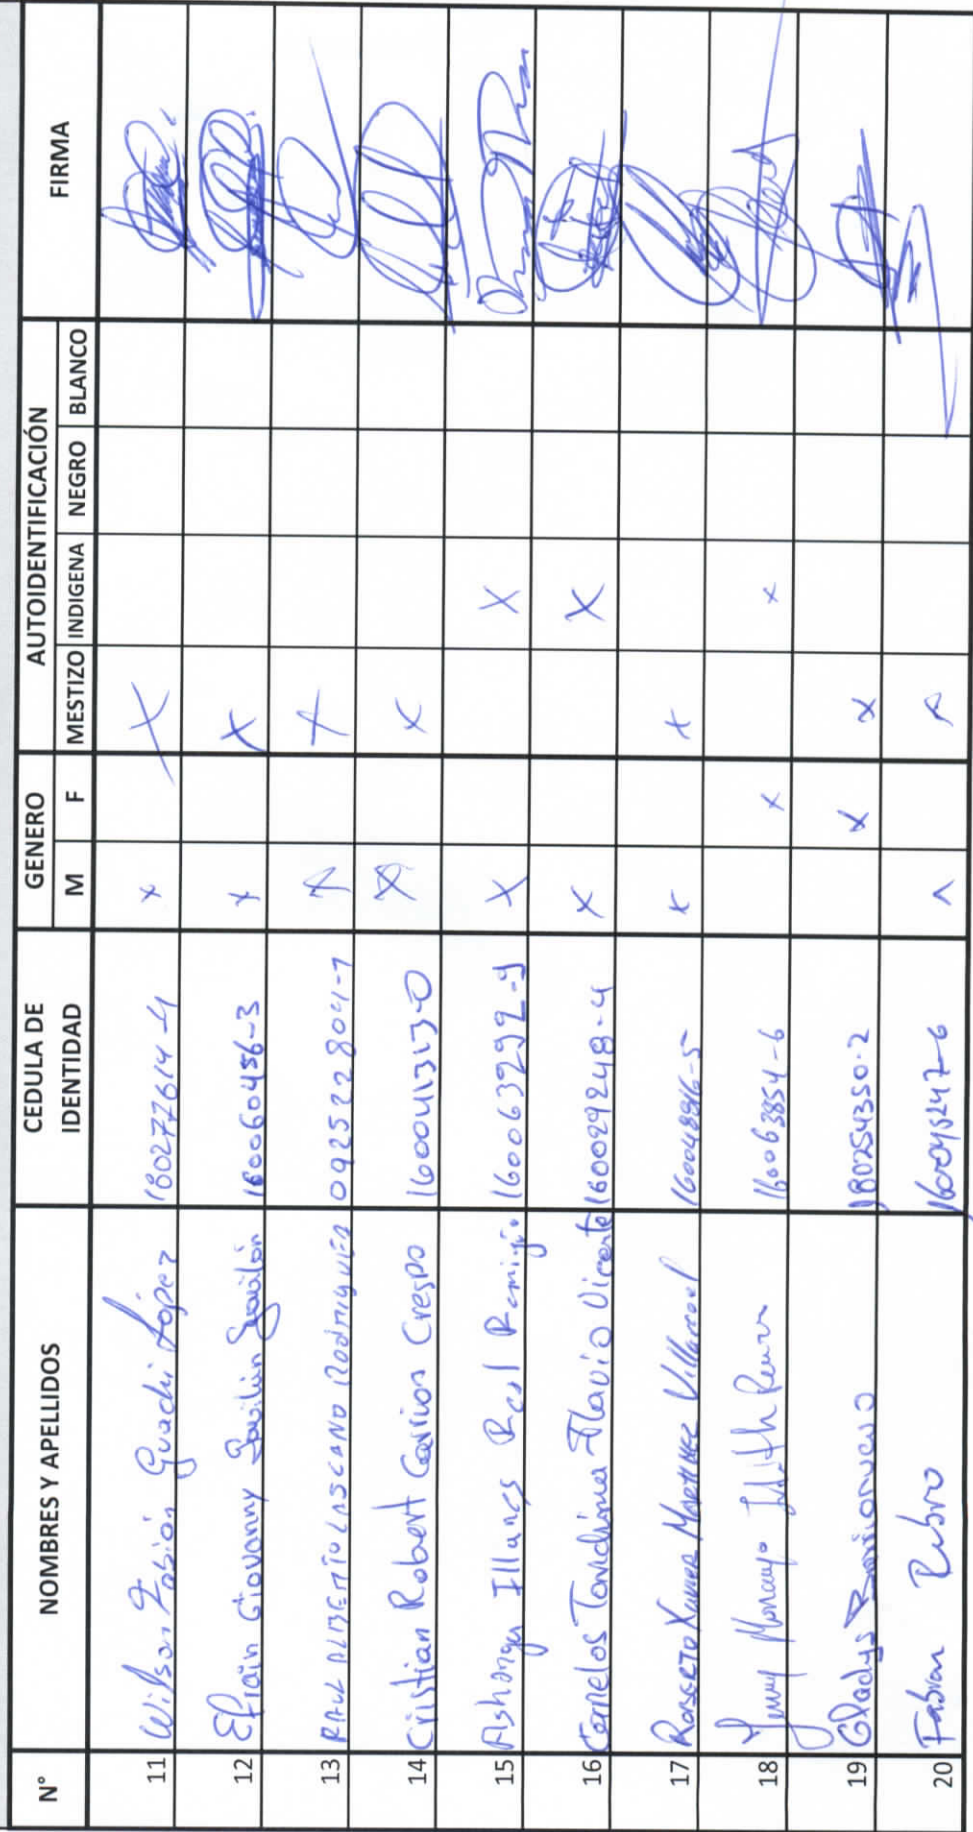 N° NOMBRES Y APELLIDOS CEDULA DE IDENTIDAD GENERO AUTOIDENTIFICACIÓN FIRMA
M F MESTIZO INDIGENA NEGRO BLANCO
11 Wilson Fabián Guachi López 180277614-4 x X
12 Efraín Giovanny Gavilán Gavilán 160060456-3 x x
13 RAUL ALBERTO LASCANO RODRIGUEZ 092522804-1 X X
14 Cristian Robert Barrios Crespo 160041313-0 X x
15 Ashanga Illanes Raul Remigio 160063292-9 X X
16 Canelos Tandima Flavio Vicente 160029248-4 X X
17 ROBERTO Xavier MARTINEZ Villarreal 160048816-5 x x
18 Jenny Moncayo 160063854-6 x x
19 Gladys Barrionuevo 180254350-2 x x
20 Fabian Rubio 160045247-6